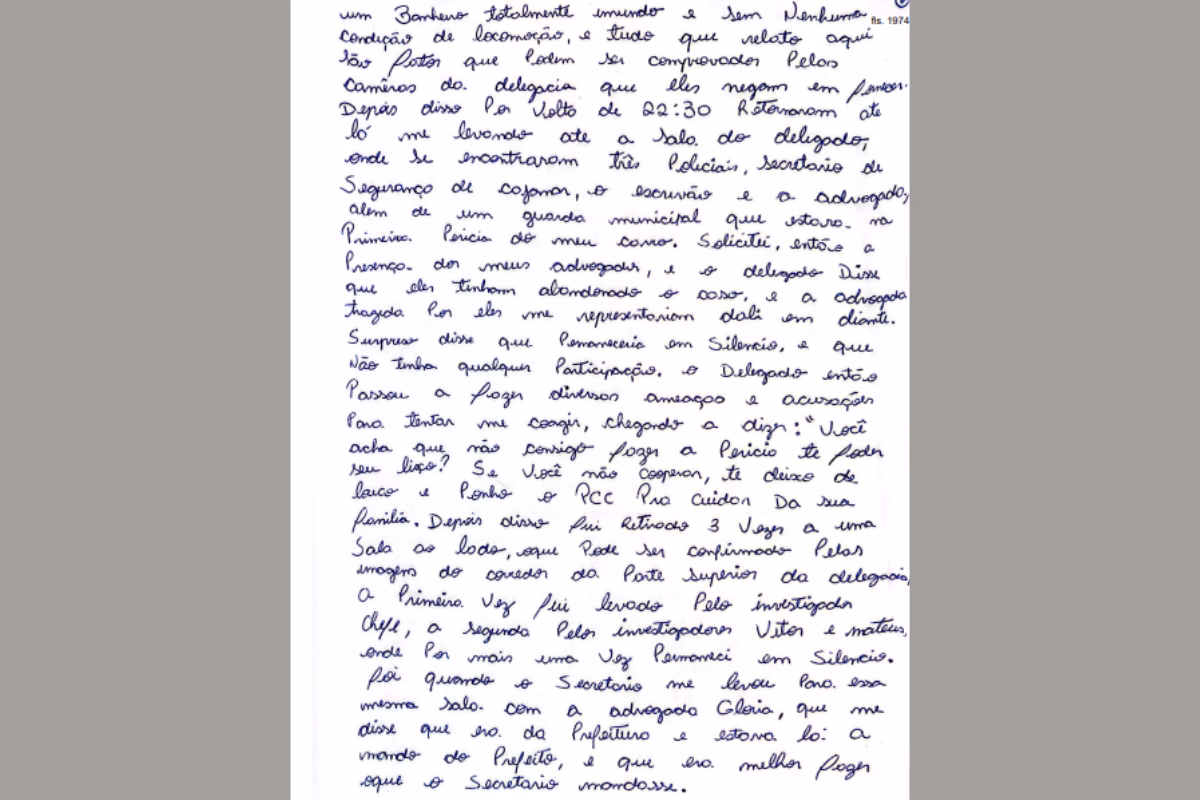 um Banheiro totalmente imundo e sem Nenhuma
fls. 1974
condição de locomoção, e tudo que relato aqui
São fatos que Podem ser comprovados Pelas
Camêras da delegacia que eles negam em fornecer.
Depois disso Por Volta de 22:30 Retornaram até
lá me levando ate a sala do delegado,
onde se encontraram três Policiais, secretario de
Segurança de cajamar, o escrivão e a advogada,
alem de um guarda municipal que estava na
Primeira Pericia do meu carro. Solicitei, então a
Presença dos meus advogados, e o delegado Disse
que eles tinham abandonado o caso, e a advogada
trazida Por eles me representariam dali em diante.
Surpreso disse que Permaneceria em Silencio, e que
Não tinha qualquer Participação. o Delegado então
Passou a fazer diversas ameaças e acusações
Para tentar me coagir, chegando a dizer: "Você
acha que não consigo fazer a Pericia te foder
seu lixo? Se Você não cooperar, te deixo de
laico e Ponho o PCC Pra cuidar Da sua
familia. Depois disso fui Retirado 3 Vezes a uma
Sala ao lado, oque Pode ser confirmado Pelas
imagens do corredor da Parte superior da delegacia,
a Primeira Vez fui levado Pelo investigador
Chefe, a segunda Pelos investigadores Vitor e mateus,
onde Por mais uma Vez Permaneci em Silencio.
foi quando o Secretario me levou Para essa
mesma sala com a advogada Gloria, que me
disse que era da Prefeitura e estava lá a
mando do Prefeito, e que era melhor fazer
oque o Secretario mandasse.